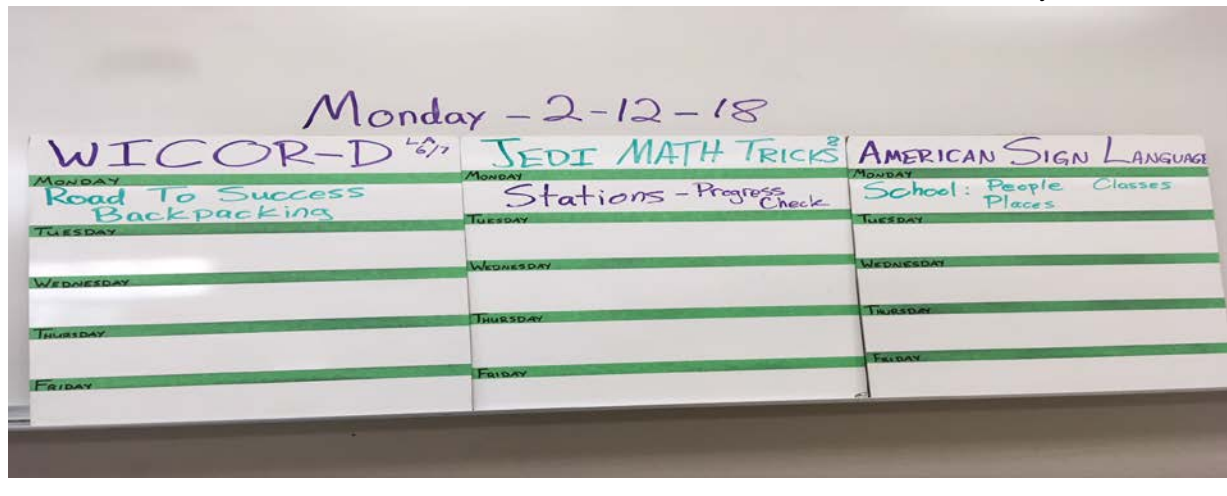 Monday - 2-12-18
WICOR-D LA 6/7
MONDAY
Road To Success
Backpacking
TUESDAY
WEDNESDAY
THURSDAY
FRIDAY
JEDI MATH TRICKS 2
MONDAY
Stations - Progress
Check
TUESDAY
WEDNESDAY
THURSDAY
FRIDAY
AMERICAN SIGN LANGUAGE
MONDAY
School: People Classes
Places
TUESDAY
WEDNESDAY
THURSDAY
FRIDAY